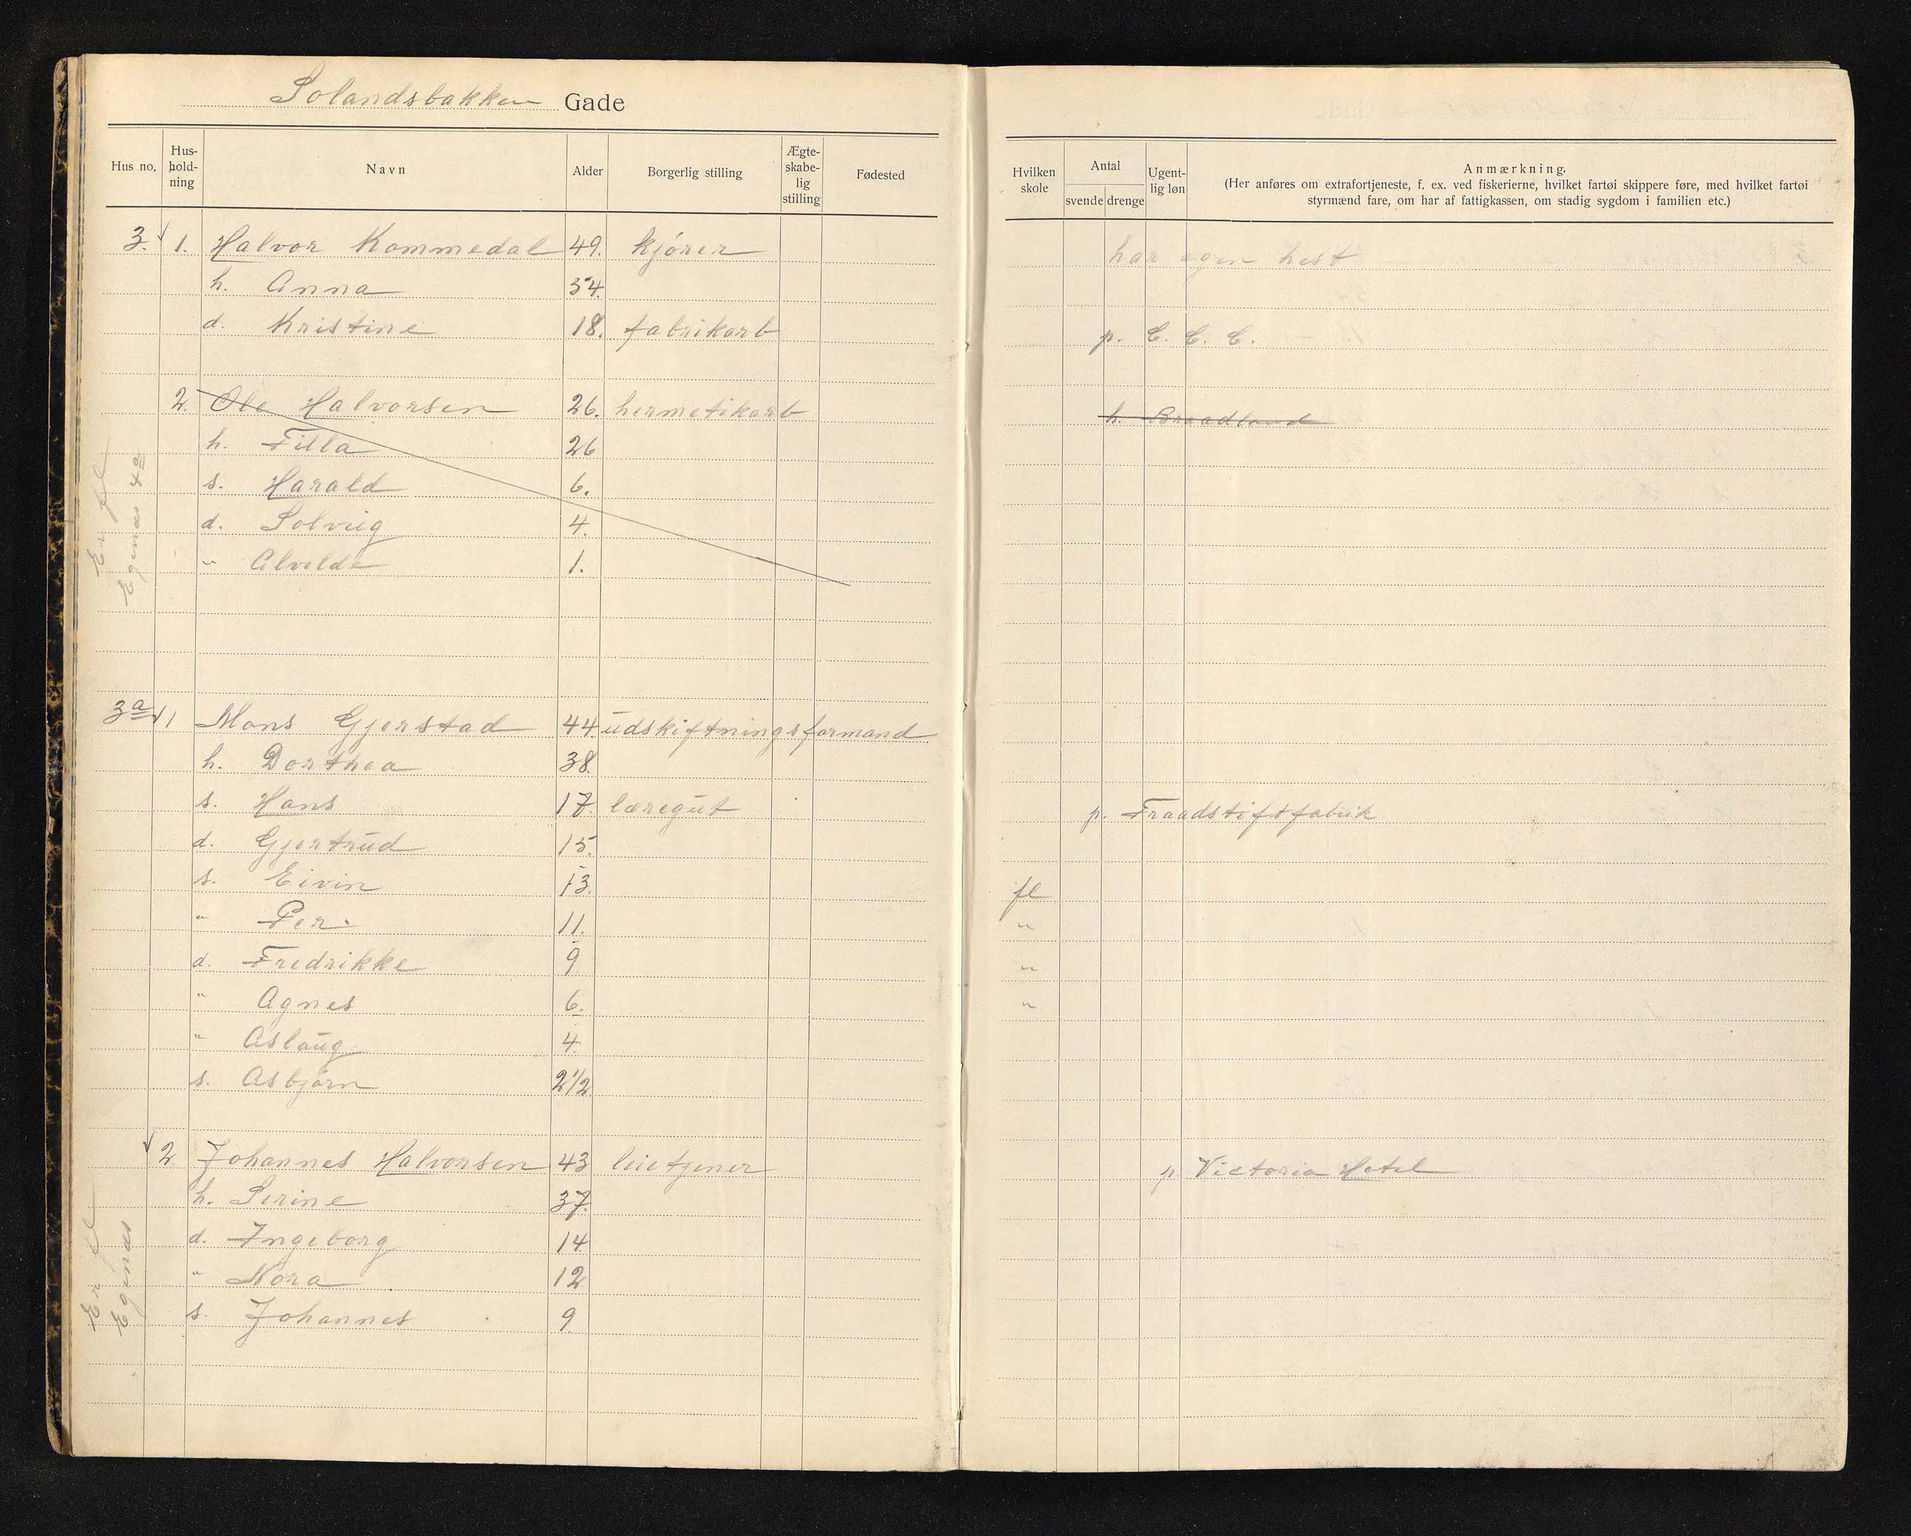 Solandsbakken Gade
Hus no. Hus-hold-ning Navn Alder Borgerlig stilling Ægte-skabe-lig stilling Fødested Hvilken skole Antal svende drenge Ugent-lig løn Anmærkning.
(Her anføres om extrafortjeneste, f. ex. ved fiskerierne, hvilket fartøi skippere føre, med hvilket fartøi
styrmænd fare, om har af fattigkassen, om stadig sygdom i familien etc.)
3. 1. Halvor Kommedal 49. kjører har egen hest
h. Anna 54.
d. Kristine 18. fabrikarb p. C. C. C.
2. Ole Halvorsen 26. hermetikarb h. Braadland
h. Tilla 26
s. Harald 6.
d. Solveig 4.
" Alvilde 1.
Er fl
Egenæs 4a
3a 1 Mons Gjerstad 44 udskiftningsformand
h. Dorthea 38.
s. Hans 17. læregut p. Traadstiftfabrik
d. Gjertrud 15.
s. Eivin 13. fl
" Per 11. "
d. Fredrikke 9 "
" Agnes 6. "
" Aslaug 4
s. Asbjørn 2 1/2
2. Johannes Halvorsen 43 leietjener p. Victoria Hotel
h. Serine 37.
d. Ingeborg 14
" Nora 12
s. Johannes 9
Er fl
Egenæs